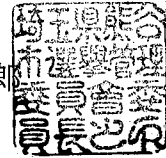 郎
埼玉県熊谷
市選擧管理
委員会委
員長之印